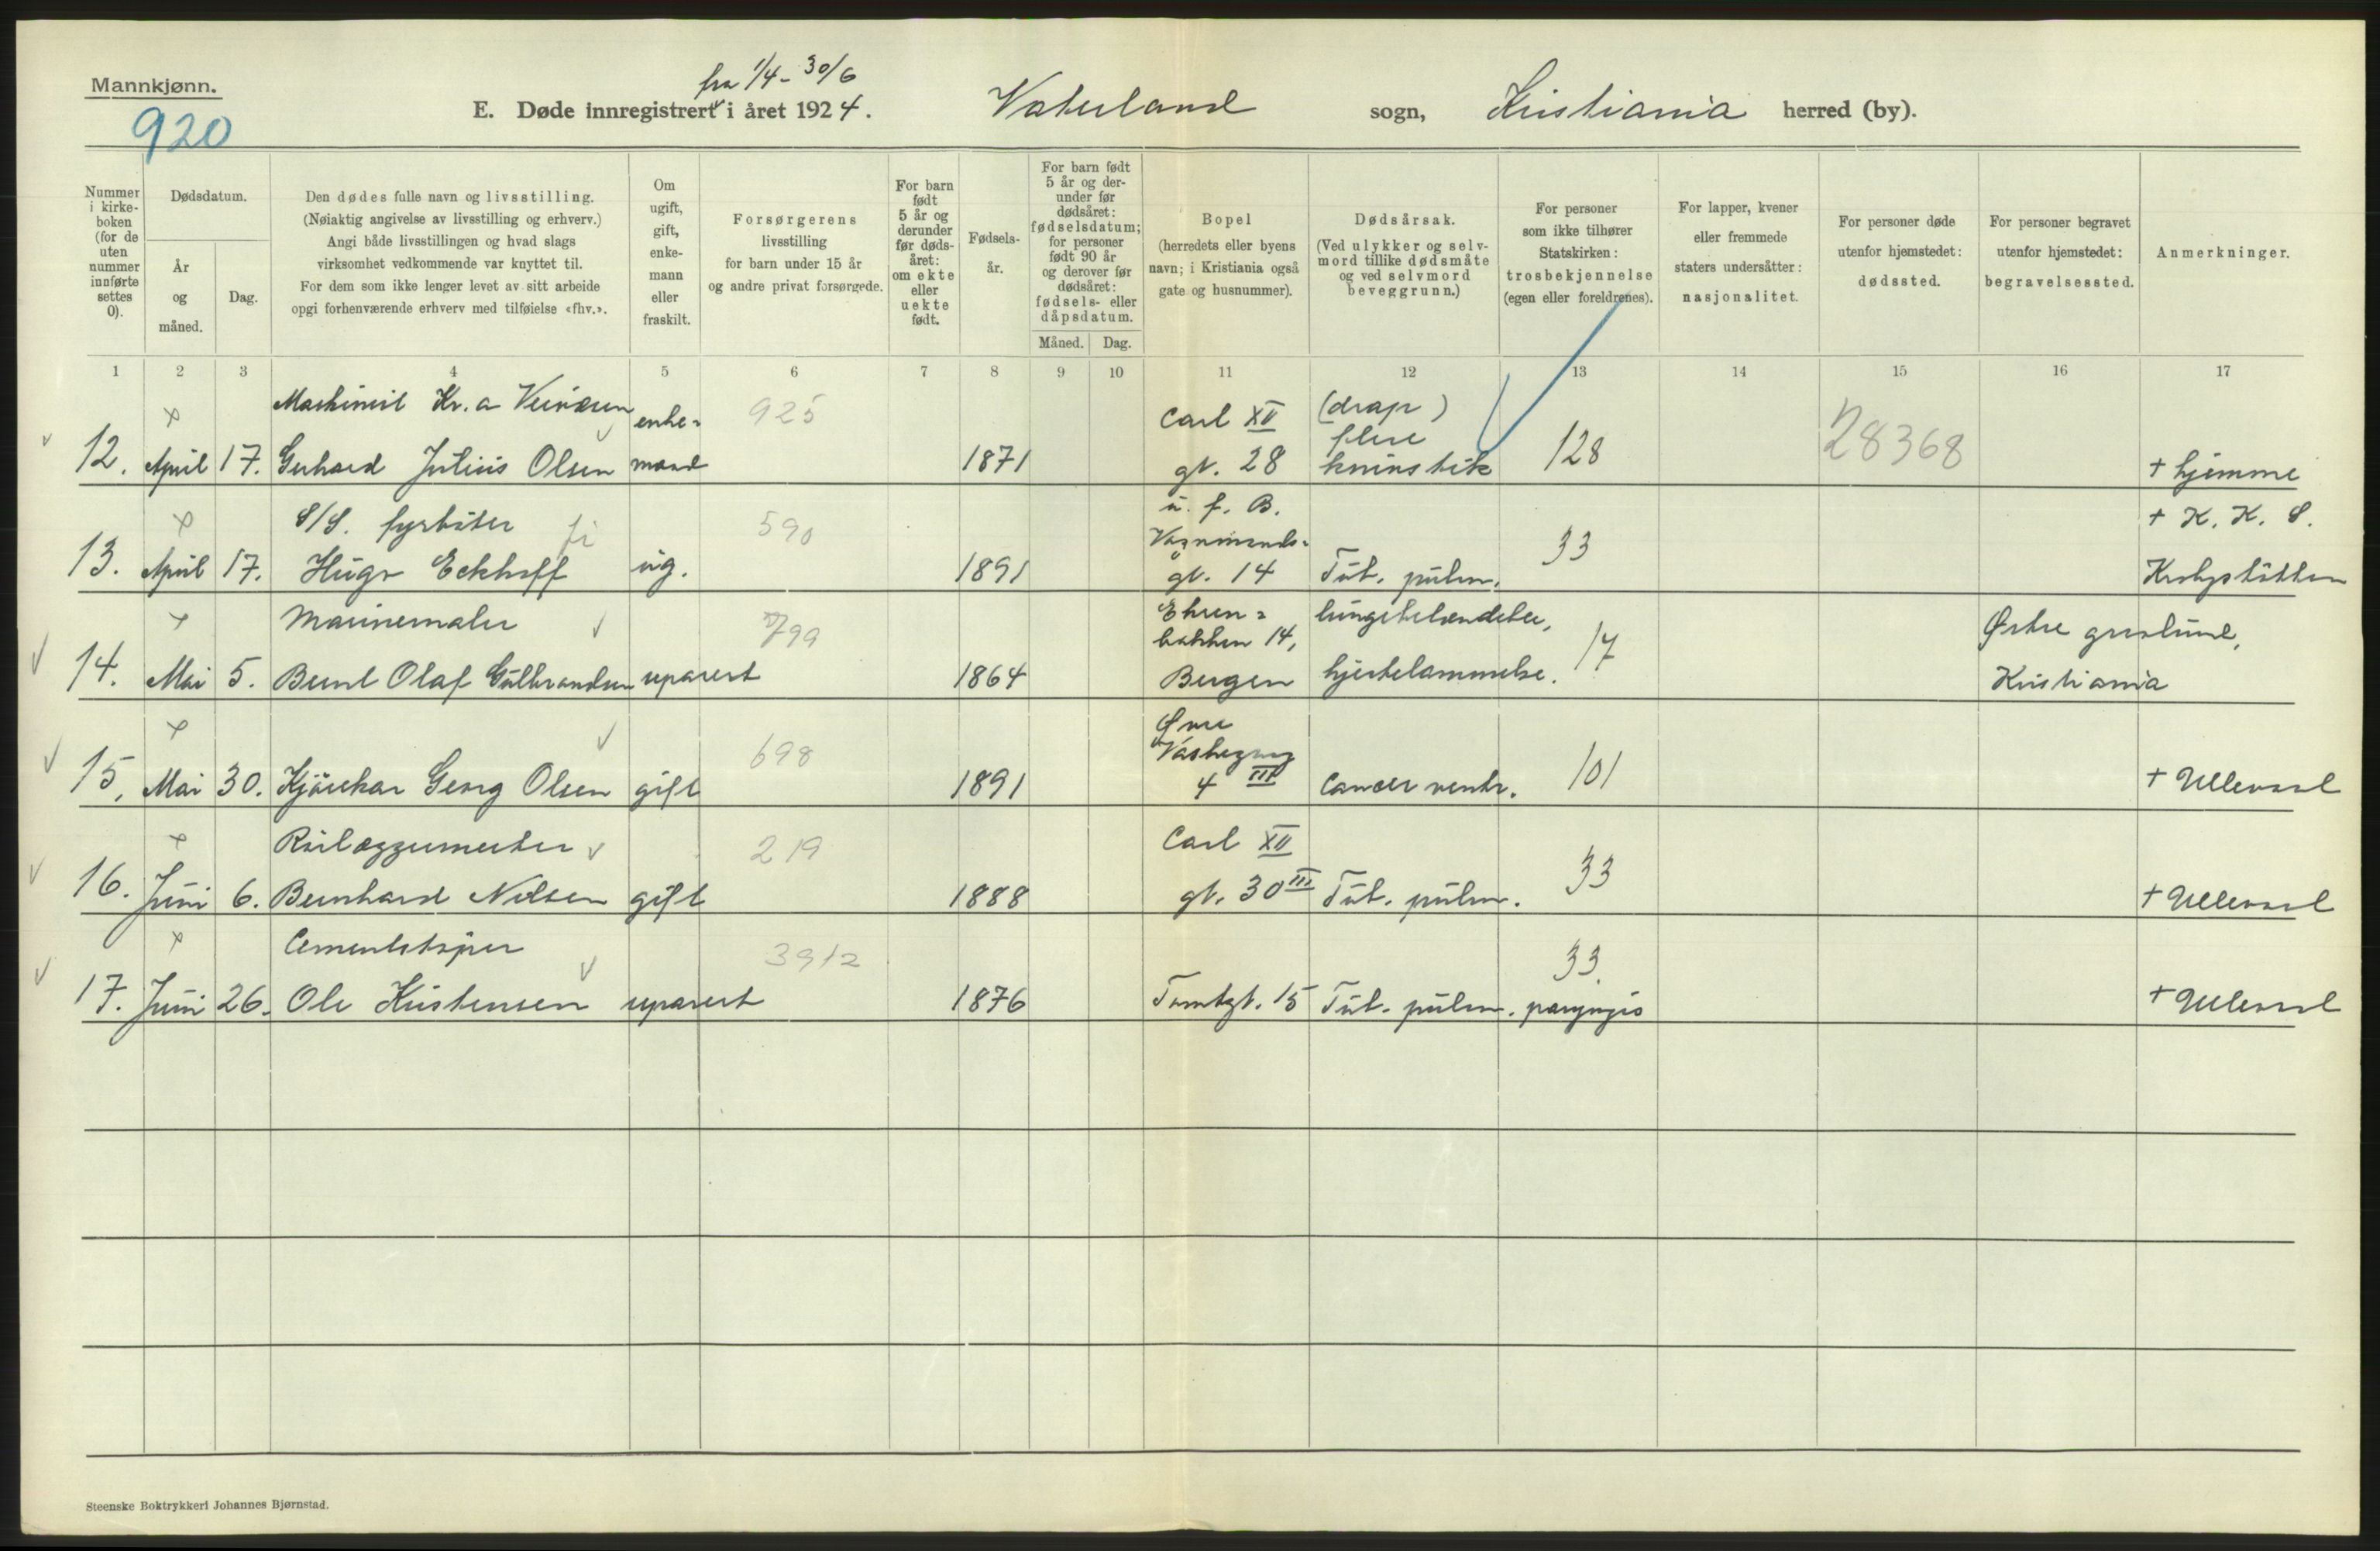 Mannkjønn.
920
fra 1/4 - 30/6
E. Døde innregistrert i året 1924. Vaterland sogn, Kristiania herred (by).
Nummer i kirkeboken (for de uten nummer innførte settes 0).
Dødsdatum.
År og måned.
Dag.
Den dødes fulle navn og livsstilling.
(Nøiaktig angivelse av livsstilling og erhverv.)
Angi både livsstillingen og hvad slags
virksomhet vedkommende var knyttet til.
For dem som ikke lenger levet av sitt arbeide
opgi forhenværende erhverv med tilføielse «fhv.».
Om ugift, gift, enkemann eller fraskilt.
Forsørgerens
livsstilling
for barn under 15 år
og andre privat forsørgede.
For barn født 5 år og derunder før dødsåret: om ekte eller uekte født.
Fødselsår.
For barn født 5 år og derunder før dødsåret: fødselsdatum; for personer født 90 år og derover før dødsåret: fødsels- eller dåpsdatum.
Måned. Dag.
Bopel
(herredets eller byens
navn; i Kristiania også
gate og husnummer).
Dødsårsak.
(Ved ulykker og selvmord tillike dødsmåte
og ved selvmord
beveggrunn.)
For personer
som ikke tilhører
Statskirken:
trosbekjennelse
(egen eller foreldrenes).
For lapper, kvener
eller fremmede
staters undersåtter:
nasjonalitet.
For personer døde
utenfor hjemstedet:
dødssted.
For personer begravet
utenfor hjemstedet:
begravelsessted.
Anmerkninger.
1 2 3 4 5 6 7 8 9 10 11 12 13 14 15 16 17
Maskinist Kr.a enke= 925 Carl XII (drap)
flere 128 28368
12. April 17. Gerhard Julius Olsen mand 1871 gt. 28 knivstik + hjemme
S/S. fyrbøter 590 u. f. B. + K. K. S.
33
13. April 17. Hugo Eckhoff ug. 1891 gt. 14 Tub. pulm. Krohgstøtten
Marinemaler 799 Ehren= lungebetændelse, Østre gravlund,
bakken 14, 17
14. Mai 5. Bernt Olaf Gulbrandsen separert 1864 Bergen hjertelammelse. Kristiania
Øvre
698 4 III 101
15. Mai 30. Georg Olsen gift 1891 Cancer ventr. + Ullevaal
Rørlæggermester 219 Carl XII
33
16. Juni 6. Bernhard Nilsen gift 1888 gt. 30 III Tub. pulm. + Ullevaal
Cementstøper 3912 33
17. Juni 26. Ole Kristensen separert 1876 Tomtegt. 15 Tub. pulm. + Ullevaal
Steenske Boktrykkeri Johannes Bjørnstad.